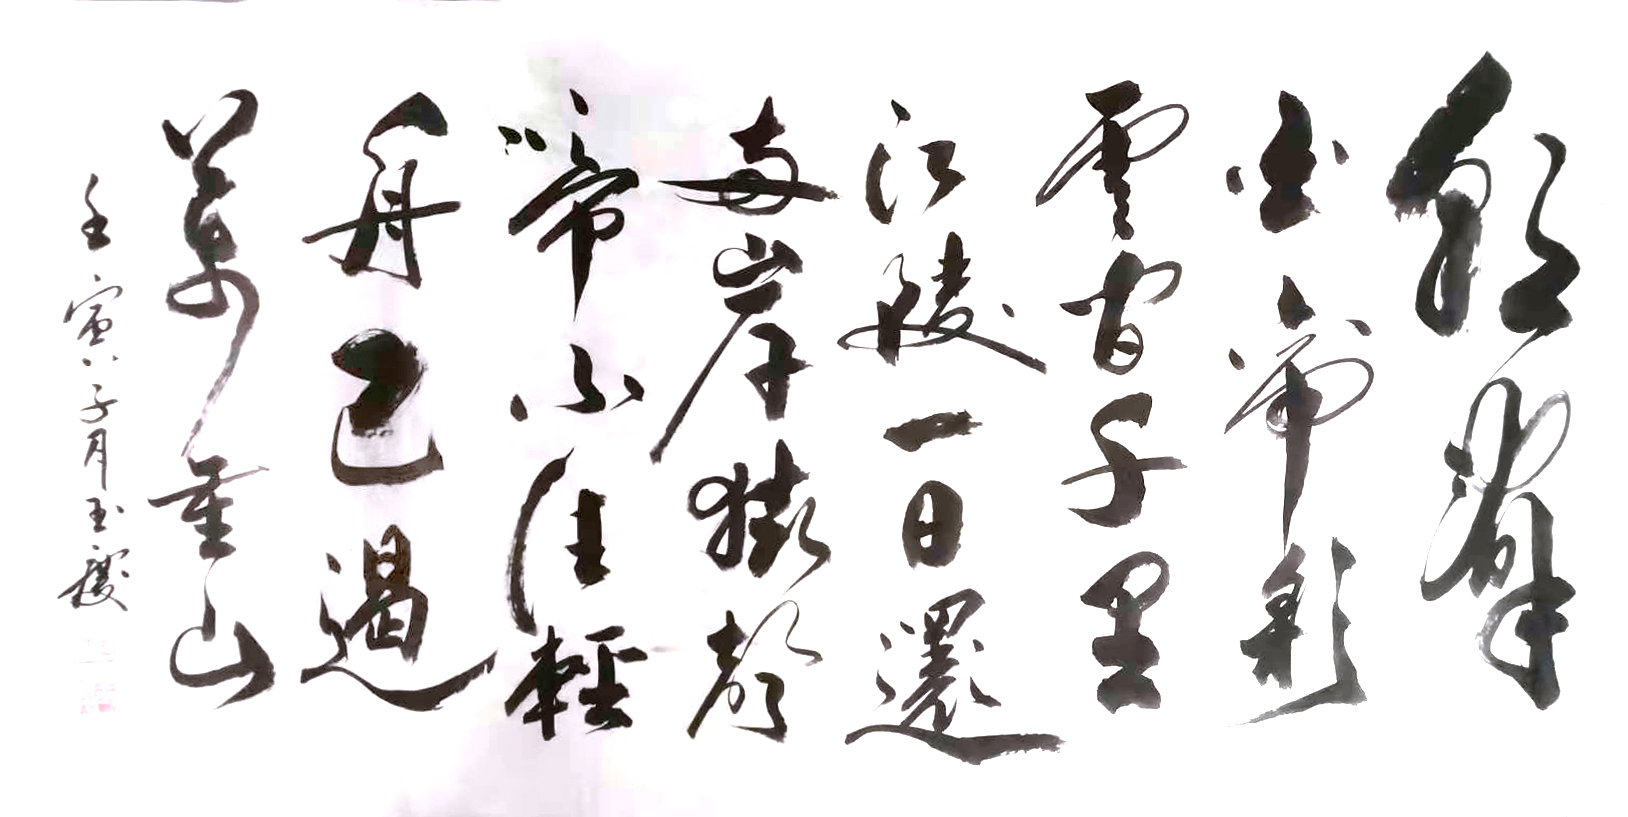 朝辭
白帝彩
雲間千里
江陵一日還
兩岸猿聲
啼不住輕
舟已過
萬重山
壬寅子月玉